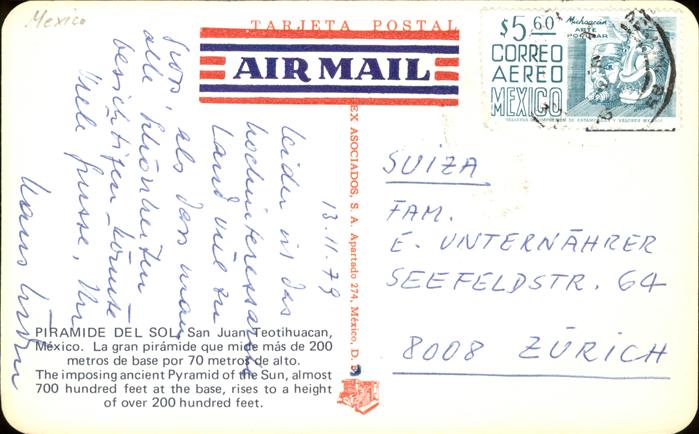 Mexico
TARJETA POSTAL
AIR MAIL
$5.60
Michoacán
ARTE
POPULAR
CORREO
AEREO
MEXICO
EX ASOCIADOS, S. A. Apartado 274, México, D.
13.11.79
Leider ist das
hochinteressante
Land viel zu
gross, als dass man
alle Schönheiten
besichtigen könnte
Viele Grüsse, Ihr
Hans
SUIZA
FAM.
E. UNTERNÄHRER
SEEFELDSTR. 64
8008 ZÜRICH
PIRAMIDE DEL SOL, San Juan Teotihuacan,
México. La gran pirámide que mide más de 200
metros de base por 70 metros de alto.
The imposing ancient Pyramid of the Sun, almost
700 hundred feet at the base, rises to a height
of over 200 hundred feet.